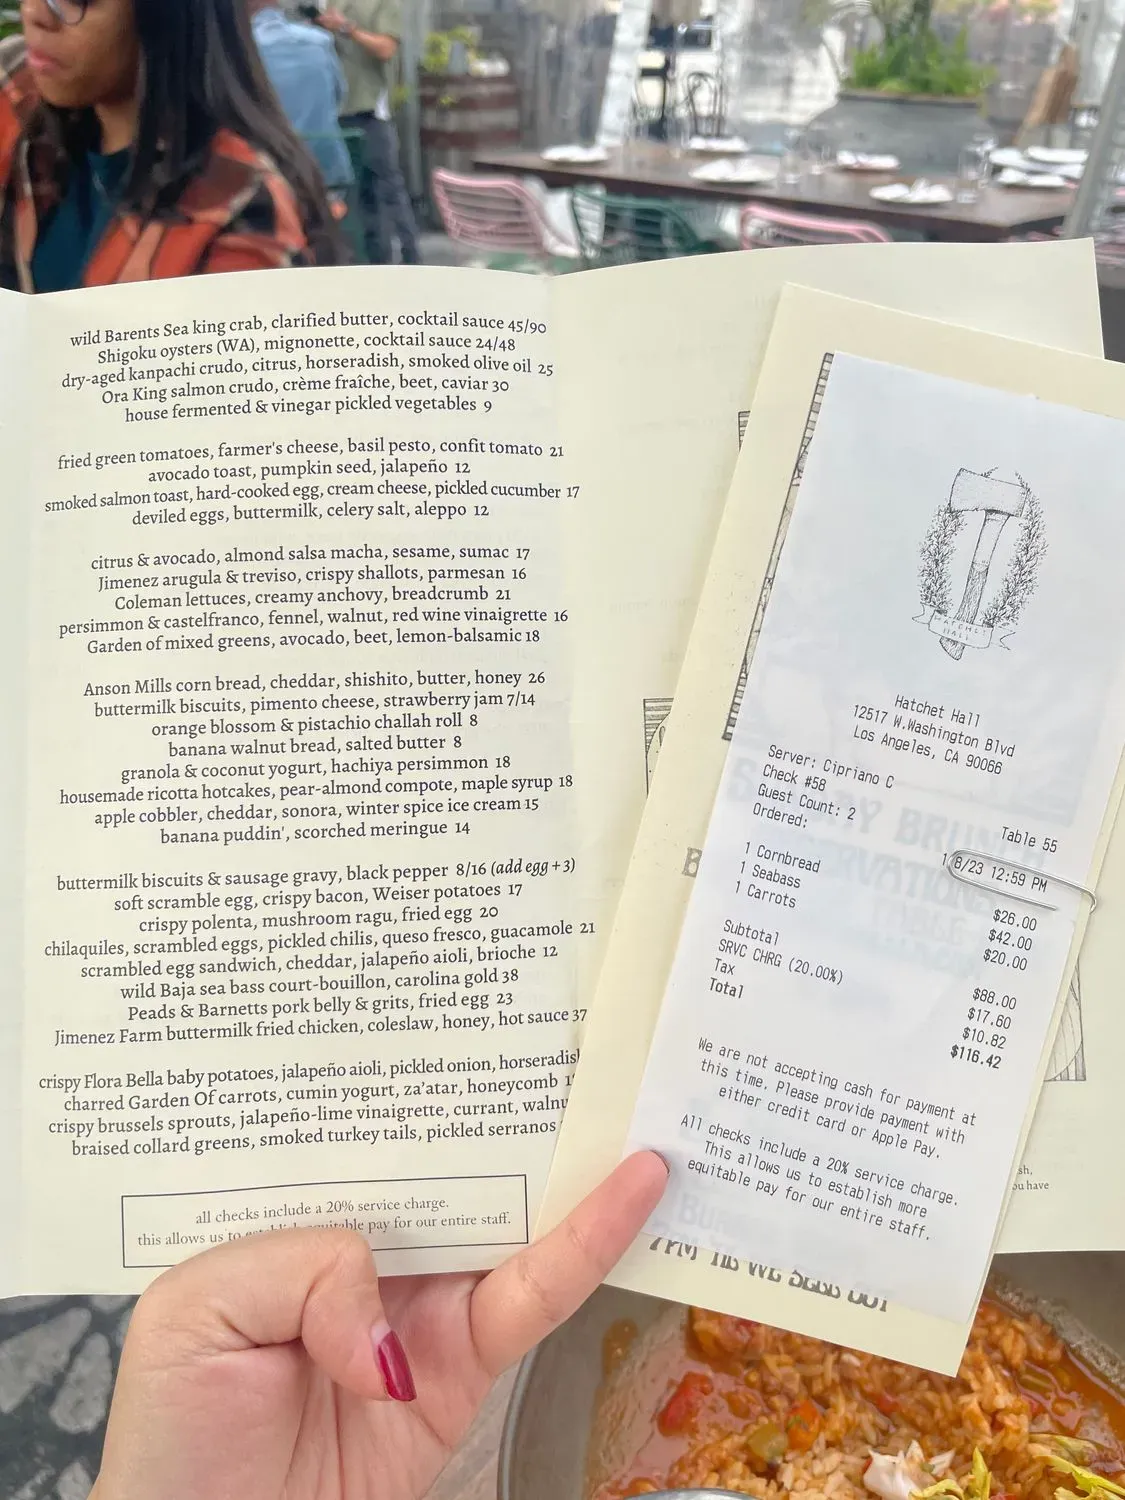 wild Barents Sea king crab, clarified butter, cocktail sauce 45/90
Shigoku oysters (WA), mignonette, cocktail sauce 24/48
dry-aged kanpachi crudo, citrus, horseradish, smoked olive oil 25
Ora King salmon crudo, crème fraîche, beet, caviar 30
house fermented & vinegar pickled vegetables 9
fried green tomatoes, farmer's cheese, basil pesto, confit tomato 21
avocado toast, pumpkin seed, jalapeño 12
smoked salmon toast, hard-cooked egg, cream cheese, pickled cucumber 17
deviled eggs, buttermilk, celery salt, aleppo 12
citrus & avocado, almond salsa macha, sesame, sumac 17
Jimenez arugula & treviso, crispy shallots, parmesan 16
Coleman lettuces, creamy anchovy, breadcrumb 21
persimmon & castelfranco, fennel, walnut, red wine vinaigrette 16
Garden of mixed greens, avocado, beet, lemon-balsamic 18
Anson Mills corn bread, cheddar, shishito, butter, honey 26
buttermilk biscuits, pimento cheese, strawberry jam 7/14
orange blossom & pistachio challah roll 8
banana walnut bread, salted butter 8
granola & coconut yogurt, hachiya persimmon 18
housemade ricotta hotcakes, pear-almond compote, maple syrup 18
apple cobbler, cheddar, sonora, winter spice ice cream 15
banana puddin', scorched meringue 14
buttermilk biscuits & sausage gravy, black pepper 8/16 (add egg +3)
soft scramble egg, crispy bacon, Weiser potatoes 17
crispy polenta, mushroom ragu, fried egg 20
chilaquiles, scrambled eggs, pickled chilis, queso fresco, guacamole 21
scrambled egg sandwich, cheddar, jalapeño aioli, brioche 12
wild Baja sea bass court-bouillon, carolina gold 38
Peads & Barnetts pork belly & grits, fried egg 23
Jimenez Farm buttermilk fried chicken, coleslaw, honey, hot sauce 37
crispy Flora Bella baby potatoes, jalapeño aioli, pickled onion, horseradish
charred Garden Of carrots, cumin yogurt, za'atar, honeycomb
crispy brussels sprouts, jalapeño-lime vinaigrette, currant, walnu
braised collard greens, smoked turkey tails, pickled serranos
all checks include a 20% service charge.
this allows us to establish equitable pay for our entire staff.
HATCHET
HALL
Hatchet Hall
12517 W.Washington Blvd
Los Angeles, CA 90066
Server: Cipriano C
Check #58 Table 55
Guest Count: 2
Ordered: 1/8/23 12:59 PM
1 Cornbread $26.00
1 Seabass $42.00
1 Carrots $20.00
Subtotal $88.00
SRVC CHRG (20.00%) $17.60
Tax $10.82
Total $116.42
We are not accepting cash for payment at
this time. Please provide payment with
either credit card or Apple Pay.
All checks include a 20% service charge.
This allows us to establish more
equitable pay for our entire staff.